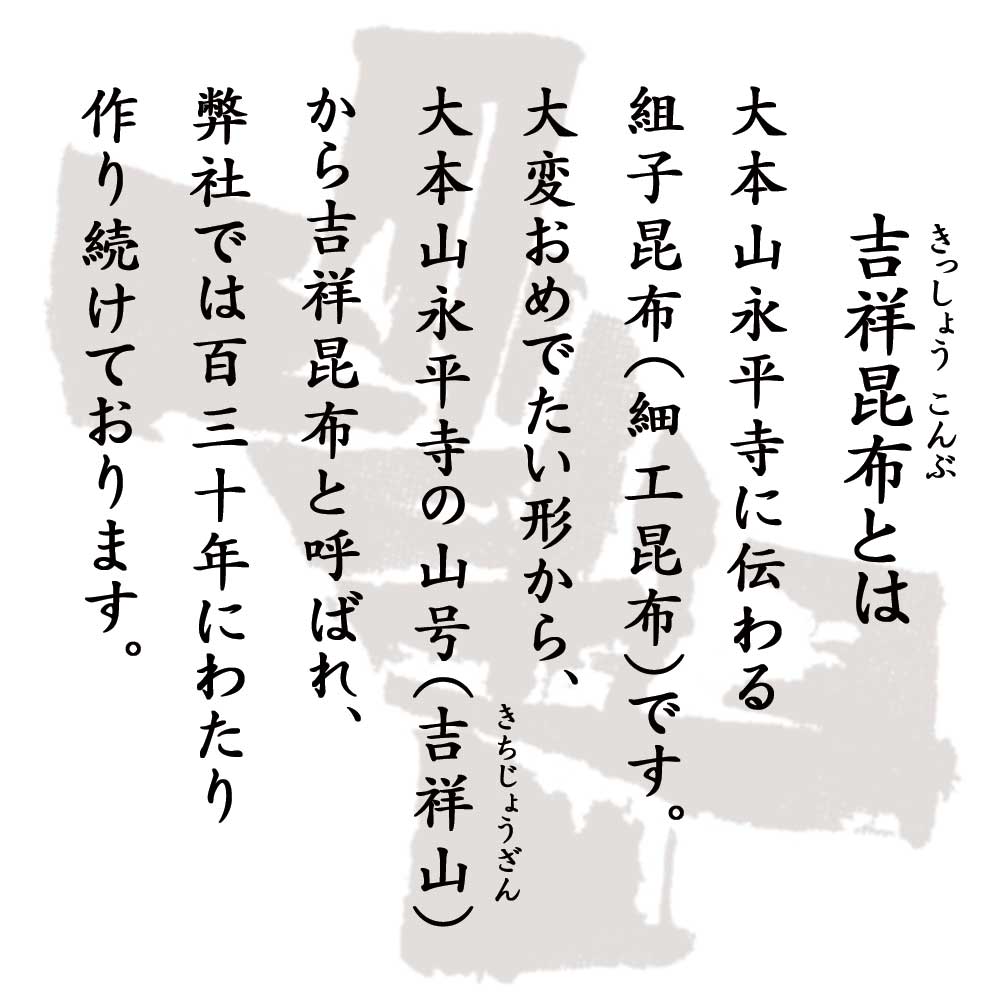 吉祥昆布とは
きっしょう こんぶ
大本山永平寺に伝わる
組子昆布（細工昆布）です。
大変おめでたい形から、
大本山永平寺の山号（吉祥山）
きちじょうざん
から吉祥昆布と呼ばれ、
弊社では百三十年にわたり
作り続けております。